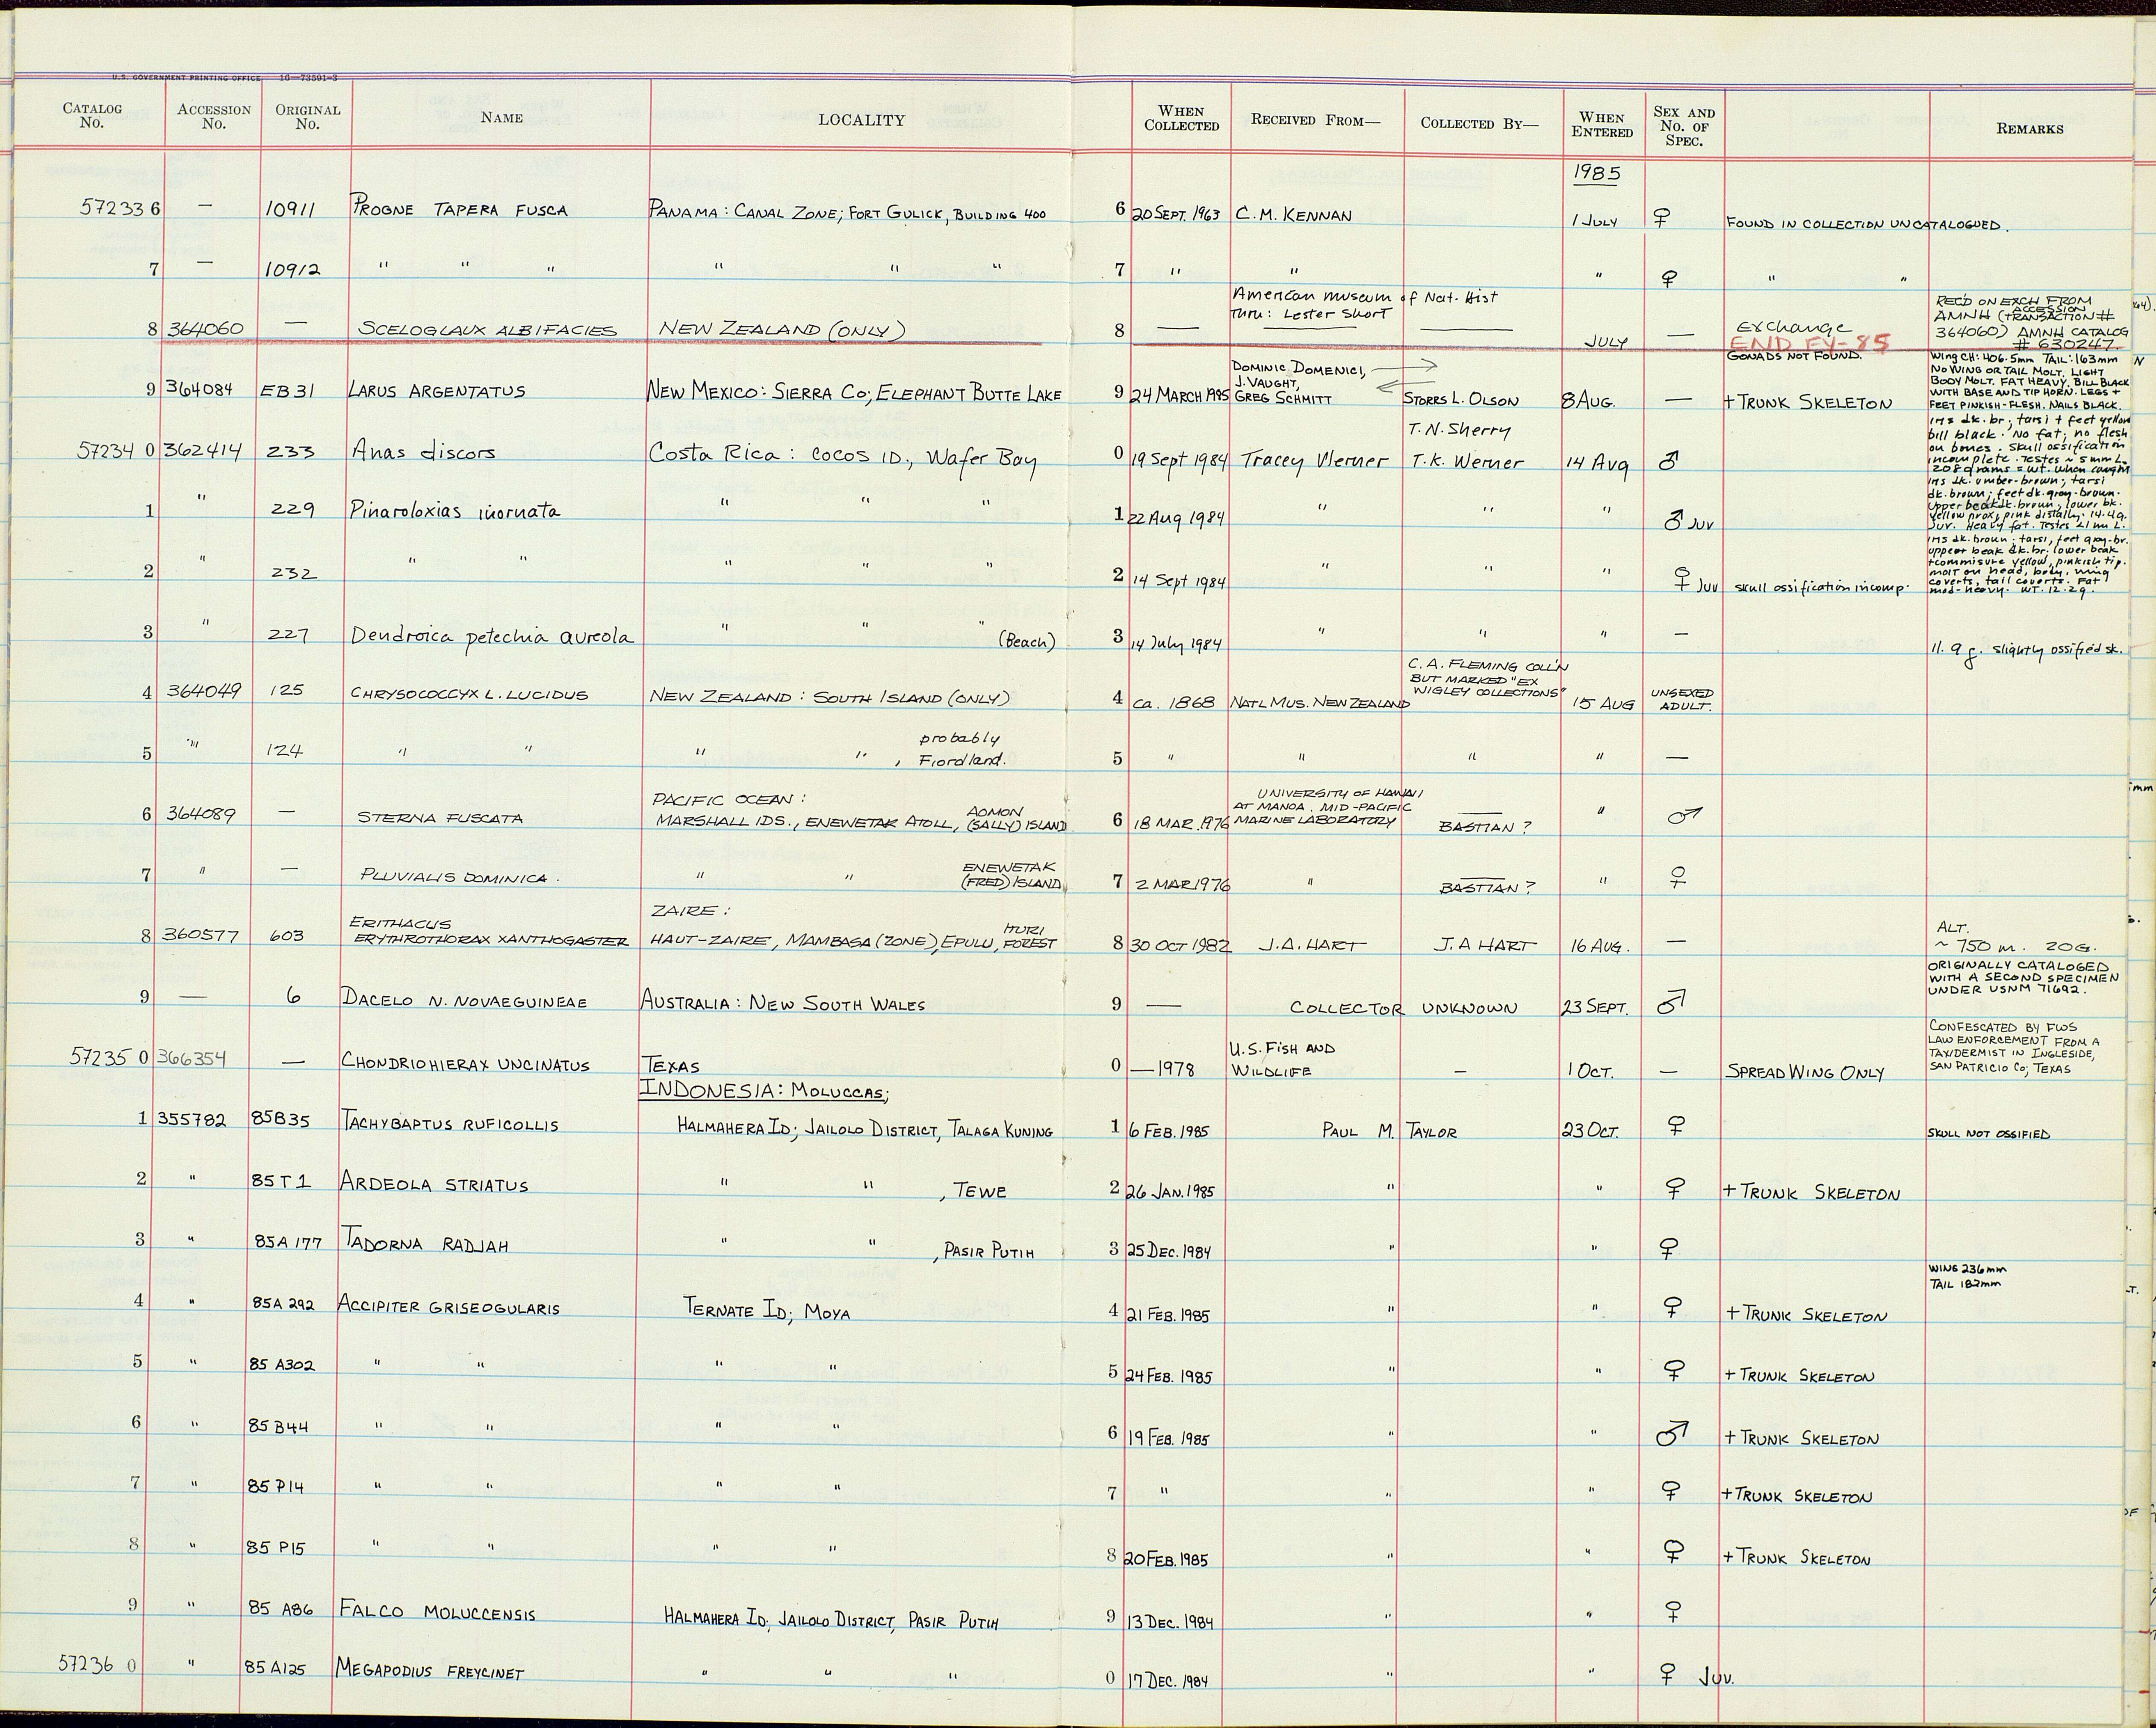 U.S. GOVERNMENT PRINTING OFFICE 16—73591-3
CATALOG No. ACCESSION No. ORIGINAL No. NAME LOCALITY WHEN COLLECTED RECEIVED FROM— COLLECTED BY— WHEN ENTERED SEX AND No. OF SPEC. REMARKS
1985
572336 — 10911 PROGNE TAPERA FUSCA PANAMA: CANAL ZONE; FORT GULICK, BUILDING 400 6 20 SEPT. 1963 C.M. KENNAN 1 JULY ♀ FOUND IN COLLECTION UNCATALOGUED.
7 — 10912 " " " " " " 7 " " " ♀ " "
8 364060 — SCELOGLAUX ALBIFACIES NEW ZEALAND (ONLY) 8 — American museum of Nat. Hist
Thru: Lester Short — JULY — Exchange
END FY-85
REC'D ON EXCH FROM
AMNH (ACCESSION TRANSACTION #
364060) AMNH CATALOG
# 630247
9 364084 EB31 LARUS ARGENTATUS NEW MEXICO: SIERRA CO; ELEPHANT BUTTE LAKE 9 24 MARCH 1985 DOMINIC DOMENICI,
J. VAUGHT,
GREG SCHMITT STORRS L. OLSON 8 AUG. — GONADS NOT FOUND.
+ TRUNK SKELETON
WING CH: 406.5mm TAIL: 163mm
NO WING OR TAIL MOLT. LIGHT
BODY MOLT. FAT HEAVY. BILL BLACK
WITH BASE AND TIP HORN. LEGS +
FEET PINKISH-FLESH. NAILS BLACK.
572340 362414 233 Anas discors Costa Rica: Cocos ID., Wafer Bay 0 19 Sept 1984 Tracey Werner T.N. Sherry
T.K. Werner 14 Aug ♂
iris dk. br; tarsi + feet yellow
bill black. No fat; no flesh
on bones. skull ossification
incomplete. Testes ~ 5mm L.
208 grams = wt. when caught
1 " 229 Pinaroloxias inornata " " " 1 22 Aug 1984 " " " ♂ Juv
iris dk. umber-brown; tarsi
dk. brown; feet dk. gray-brown.
Upper beak dk. brown, lower bk.
yellow prox, pink distally. 14.4g.
Juv. Heavy fat. Testes <1mm L.
2 " 232 " " " " " 2 14 Sept 1984 " " " ♀ Juv skull ossification incomp.
iris dk. brown; tarsi, feet gray-br.
upper beak dk. br. lower beak
+commisure yellow, pinkish tip.
molt on head, body, wing
coverts, tail coverts. Fat
mod-heavy. WT. 12.2g.
3 " 227 Dendroica petechia aureola " " " (Beach) 3 14 July 1984 " " " — 11.9 g. slightly ossified sk.
4 364049 125 CHRYSOCOCCYX L. LUCIDUS NEW ZEALAND: SOUTH ISLAND (ONLY) 4 ca. 1868 NATL MUS. NEW ZEALAND C.A. FLEMING COLL'N
BUT MARKED "EX
WIGLEY COLLECTIONS" 15 AUG UNSEXED
ADULT.
5 " 124 " " " " , probably
Fiordland. 5 " " " " —
6 364089 — STERNA FUSCATA PACIFIC OCEAN:
MARSHALL IDS., ENEWETAK ATOLL, AOMON
(SALLY) ISLAND 6 18 MAR. 1976 UNIVERSITY OF HAWAII
AT MANOA. MID-PACIFIC
MARINE LABORATORY — BASTIAN? " ♂
7 " — PLUVIALIS DOMINICA. " " ENEWETAK
(FRED) ISLAND 7 2 MAR 1976 " — BASTIAN? " ♀
8 360577 603 ERITHACUS
ERYTHROTHORAX XANTHOGASTER ZAIRE:
HAUT-ZAIRE, MAMBASA (ZONE), EPULU, ITURI
FOREST 8 30 OCT 1982 J.A. HART J.A HART 16 AUG. — ALT.
~ 750 m. 20G.
9 — 6 DACELO N. NOVAEGUINEAE AUSTRALIA: NEW SOUTH WALES 9 — COLLECTOR UNKNOWN 23 SEPT. ♂
ORIGINALLY CATALOGED
WITH A SECOND SPECIMEN
UNDER USNM 71692.
572350 366354 — CHONDRIOHIERAX UNCINATUS TEXAS 0 —1978 U.S. FISH AND
WILDLIFE — 1 OCT. — SPREAD WING ONLY
CONFESCATED BY FWS
LAW ENFORCEMENT FROM A
TAXIDERMIST IN INGLESIDE,
SAN PATRICIO CO; TEXAS
INDONESIA: MOLUCCAS;
1 355782 85B35 TACHYBAPTUS RUFICOLLIS HALMAHERA ID; JAILOLO DISTRICT, TALAGA KUNING 1 6 FEB. 1985 PAUL M. TAYLOR 23 OCT. ♀ SKULL NOT OSSIFIED
2 " 85T1 ARDEOLA STRIATUS " " , TEWE 2 26 JAN. 1985 " " ♀ + TRUNK SKELETON
3 " 85A177 TADORNA RADJAH " " , PASIR PUTIH 3 25 DEC. 1984 " " ♀
4 " 85A292 ACCIPITER GRISEOGULARIS TERNATE ID; MOYA 4 21 FEB. 1985 " " ♀ + TRUNK SKELETON WING 236mm
TAIL 182mm
5 " 85 A302 " " " " 5 24 FEB. 1985 " " ♀ + TRUNK SKELETON
6 " 85 B44 " " " " 6 19 FEB. 1985 " " ♂ + TRUNK SKELETON
7 " 85 P14 " " " " 7 " " " ♀ + TRUNK SKELETON
8 " 85 P15 " " " " 8 20 FEB. 1985 " " ♀ + TRUNK SKELETON
9 " 85 A86 FALCO MOLUCCENSIS HALMAHERA ID; JAILOLO DISTRICT, PASIR PUTIH 9 13 DEC. 1984 " " ♀
572360 " 85 A125 MEGAPODIUS FREYCINET " " " 0 17 DEC. 1984 " " ♀ Juv.